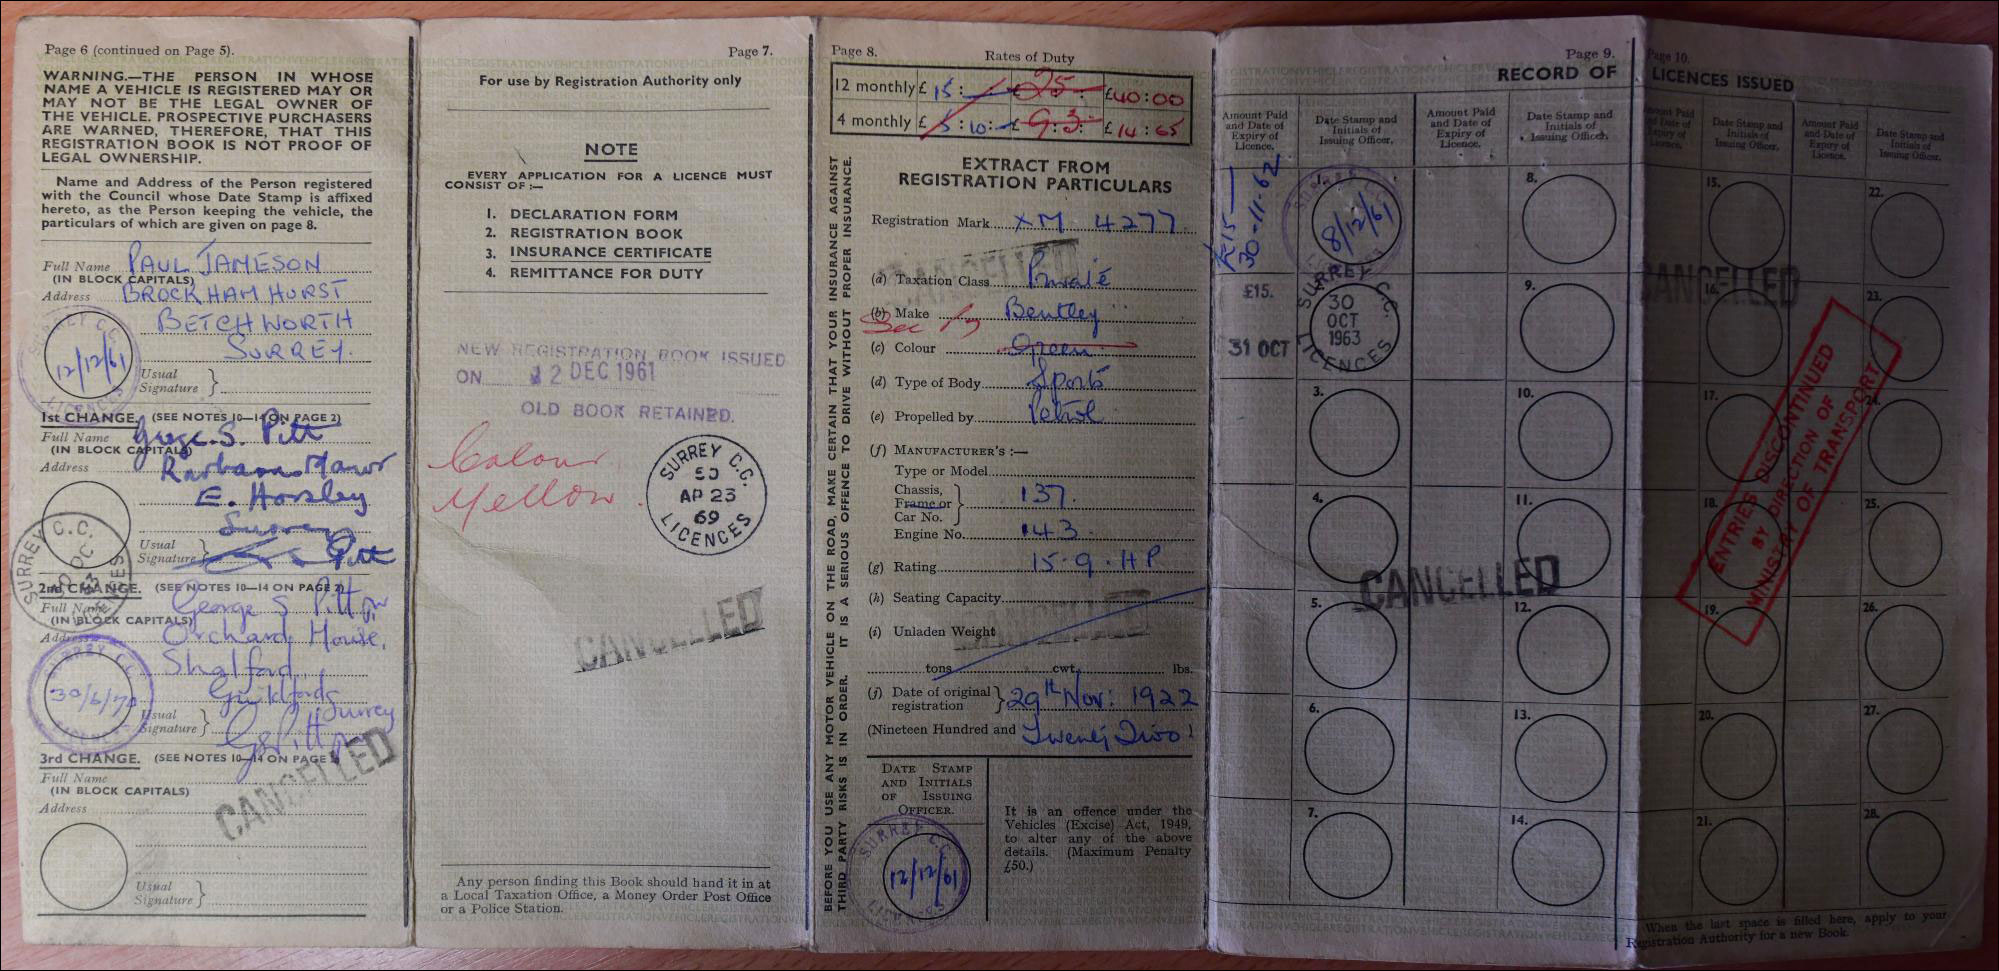 Page 6 (continued on Page 5).
WARNING.—THE PERSON IN WHOSE
NAME A VEHICLE IS REGISTERED MAY OR
MAY NOT BE THE LEGAL OWNER OF
THE VEHICLE. PROSPECTIVE PURCHASERS
ARE WARNED, THEREFORE, THAT THIS
REGISTRATION BOOK IS NOT PROOF OF
LEGAL OWNERSHIP.
Name and Address of the Person registered
with the Council whose Date Stamp is affixed
hereto, as the Person keeping the vehicle, the
particulars of which are given on page 8.
Full Name PAUL JAMESON
(IN BLOCK CAPITALS)
Address BROCKHAMHURST
BETCHWORTH
SURREY.
SURREY C.C.
12/12/61
LICENCES
Usual
Signature
1st CHANGE. (SEE NOTES 10—14 ON PAGE 2)
Full Name George S. Pitt
(IN BLOCK CAPITALS)
Address Manor
E. Horsley
Surrey
Usual
Signature Pitt
SURREY C.C.
LICENCES
2nd CHANGE. (SEE NOTES 10—14 ON PAGE 2)
Full Name George S Pitt jnr
(IN BLOCK CAPITALS)
Address Orchard House,
Shalford,
Guildford,
Surrey
SURREY C.C.
30/6/70
LICENCES
Usual
Signature G S Pitt jnr
CANCELLED
3rd CHANGE. (SEE NOTES 10—14 ON PAGE 2)
Full Name
(IN BLOCK CAPITALS)
Address
Usual
Signature
Page 7.
For use by Registration Authority only
NOTE
EVERY APPLICATION FOR A LICENCE MUST
CONSIST OF :—
1. DECLARATION FORM
2. REGISTRATION BOOK
3. INSURANCE CERTIFICATE
4. REMITTANCE FOR DUTY
NEW REGISTRATION BOOK ISSUED
ON 12 DEC 1961
OLD BOOK RETAINED.
Colour
Yellow.
SURREY C.C.
50
AP 23
69
LICENCES
CANCELLED
Any person finding this Book should hand it in at
a Local Taxation Office, a Money Order Post Office
or a Police Station.
Page 8.
Rates of Duty
12 monthly £ 15 : £ 25 £40:00
4 monthly £ 5 : 10 : £ 9 : 3 : £ 14 : 65
BEFORE YOU USE ANY MOTOR VEHICLE ON THE ROAD, MAKE CERTAIN THAT YOUR INSURANCE AGAINST
THIRD PARTY RISKS IS IN ORDER. IT IS A SERIOUS OFFENCE TO DRIVE WITHOUT PROPER INSURANCE.
EXTRACT FROM
REGISTRATION PARTICULARS
Registration Mark XM 4277
CANCELLED
(a) Taxation Class Private
(b) Make Bentley
See P7
(c) Colour Green
(d) Type of Body Sports
(e) Propelled by Petrol
(f) MANUFACTURER'S :—
Type or Model
Chassis,
Frame or
Car No. 137.
Engine No. 143.
(g) Rating 15.9. HP
(h) Seating Capacity
CANCELLED
(i) Unladen Weight
tons cwt. lbs.
(j) Date of original
registration 29th Nov: 1922
(Nineteen Hundred and Twenty Two)
DATE STAMP
AND INITIALS
OF ISSUING
OFFICER.
SURREY C.C.
12/12/61
LICENCES
It is an offence under the
Vehicles (Excise) Act, 1949,
to alter any of the above
details. (Maximum Penalty
£50.)
Page 9.
RECORD OF
Amount Paid
and Date of
Expiry of
Licence.
Date Stamp and
Initials of
Issuing Officer.
Amount Paid
and Date of
Expiry of
Licence.
Date Stamp and
Initials of
Issuing Officer.
£15
30-11-62
1.
8/12/61
8.
£15.
31 OCT
SURREY C.C.
30
OCT
1963
LICENCES
9.
3.
10.
4.
11.
CANCELLED
5.
12.
6.
13.
7.
14.
Page 10.
LICENCES ISSUED
Amount Paid
and Date of
Expiry of
Licence.
Date Stamp and
Initials of
Issuing Officer.
Amount Paid
and Date of
Expiry of
Licence.
Date Stamp and
Initials of
Issuing Officer.
15.
22.
CANCELLED
16.
23.
17.
24.
ENTRIES DISCONTINUED
BY DIRECTION OF
MINISTRY OF TRANSPORT
18.
25.
19.
26.
20.
27.
21.
28.
When the last space is filled here, apply to your
Registration Authority for a new Book.